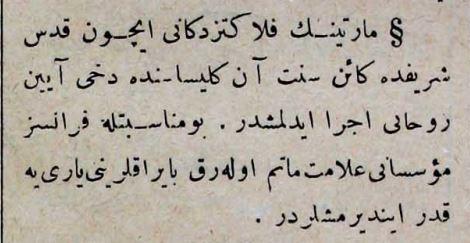 § مارتینــك فلاكتزدكانی ایچــون قدس
شریفده كائن سنت آن كلیساــنده دخی آیین
روحانی اجرا ایدلمشدر . بومناســبتله فرانسز
مؤسسانی علامت ماتم اوله‌رق بایراقلرینی یاری یه
قدر ایندیرمشلردر .